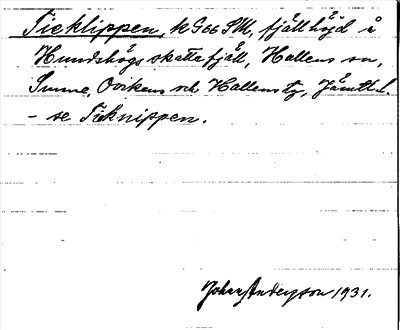 Ticklippen, k G66 SM, fjällhöjd å
Hundshögs skattefjäll, Hallens sn,
Sunne, Ovikens och Hallens tg, Jämtl. l.
- se Ticknippen.
Johan Andersson 1931.